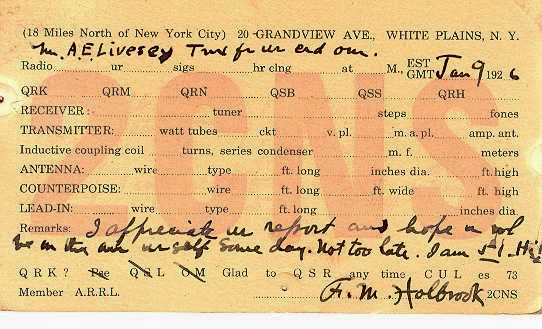 (18 Miles North of New York City) 20 GRANDVIEW AVE., WHITE PLAINS, N. Y.
Mr A.E. Livesey Tnx fr ur crd om.
Radio ur sigs hr clng at M., EST GMT Jan 9 1926
QRK QRM QRN QSB QSS QRH
RECEIVER: tuner steps fones
TRANSMITTER: watt tubes ckt v. pl. m. a. pl. amp. ant.
Inductive coupling coil turns, series condenser m. f. meters
ANTENNA: wire ft. long inches dia. ft. high
COUNTERPOISE: wire type ft. long ft. wide ft. high
LEAD-IN: wire type ft. long inches dia.
2CNS
Remarks: I appreciate ur report and hope u wl
be on the air urself some day. Not too late. I am 51. Hi!
QRK? Pse QSL OM Glad to QSR any time CUL es 73
Member A.R.R.L. F. M. Holbrook 2CNS